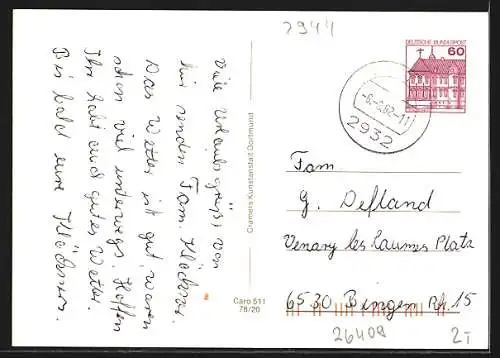 2944
DEUTSCHE BUNDESPOST
60
-6.-8.82-11
2932
Viele Urlaubsgrüße von
hier senden Fam. Klöckner.
Das Wetter ist gut, waren
schon viel unterwegs. Hoffen
Ihr habt auch gutes Wetter.
Bis bald eure Klöckners.
Cramers Kunstanstalt Dortmund
Caro 511
78/20
Fam.
G. Defland
Venary les Laumes Platz
6530 Bingen Rh. 15
26409
2T